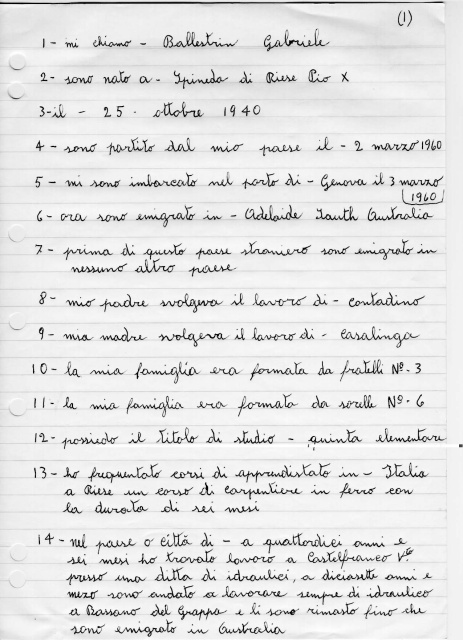 (1)
1 - mi chiamo - Ballestrin Gabriele
2 - sono nato a - Spineda di Riese Pio X
3 - il - 25 . ottobre 1940
4 - sono partito dal mio paese il - 2 marzo 1960
5 - mi sono imbarcato nel porto di - Genova il 3 marzo
1960
6 - ora sono emigrato in - Adelaide South Australia
7 - prima di questo paese straniero sono emigrato in
nessuno altro paese
8 - mio padre svolgeva il lavoro di - contadino
9 - mia madre svolgeva il lavoro di - casalinga
10 - la mia famiglia era formata da fratelli Nº - 3
11 - la mia famiglia era formata da sorelle Nº - 6
12 - possiedo il titolo di studio - quinta elementare
13 - ho frequentato corsi di apprendistato in - Italia
a Riese un corso di carpentiere in ferro con
la durata di sei mesi
14 - nel paese o città di - a quattordici anni e
sei mesi ho trovato lavoro a Castelfranco Vto
presso una ditta di idraulici, a diciasette anni e
mezo sono andato a lavorare sempre di idraulico
a Bassano del Grappa e li sono rimasto fino che
sono emigrato in Australia